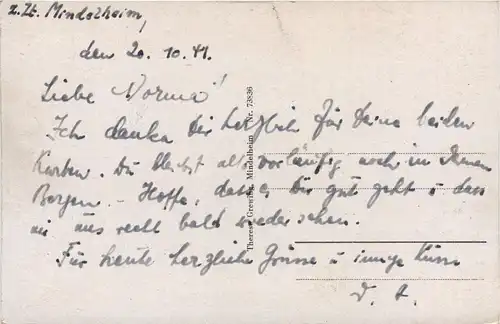 z. Zt. Mindelheim,
den 20. 10. 41.
Liebe Norma!
Ich danke Dir herzlich für Deine beiden
Karten. Du bleibst also vorläufig noch in
Bergen. Hoffe, dass es Dir gut geht u. dass
wir uns recht bald wiedersehen.
Für heute herzliche Grüsse u. innige Küsse
D. A.
Mindelheim Nr. 73836